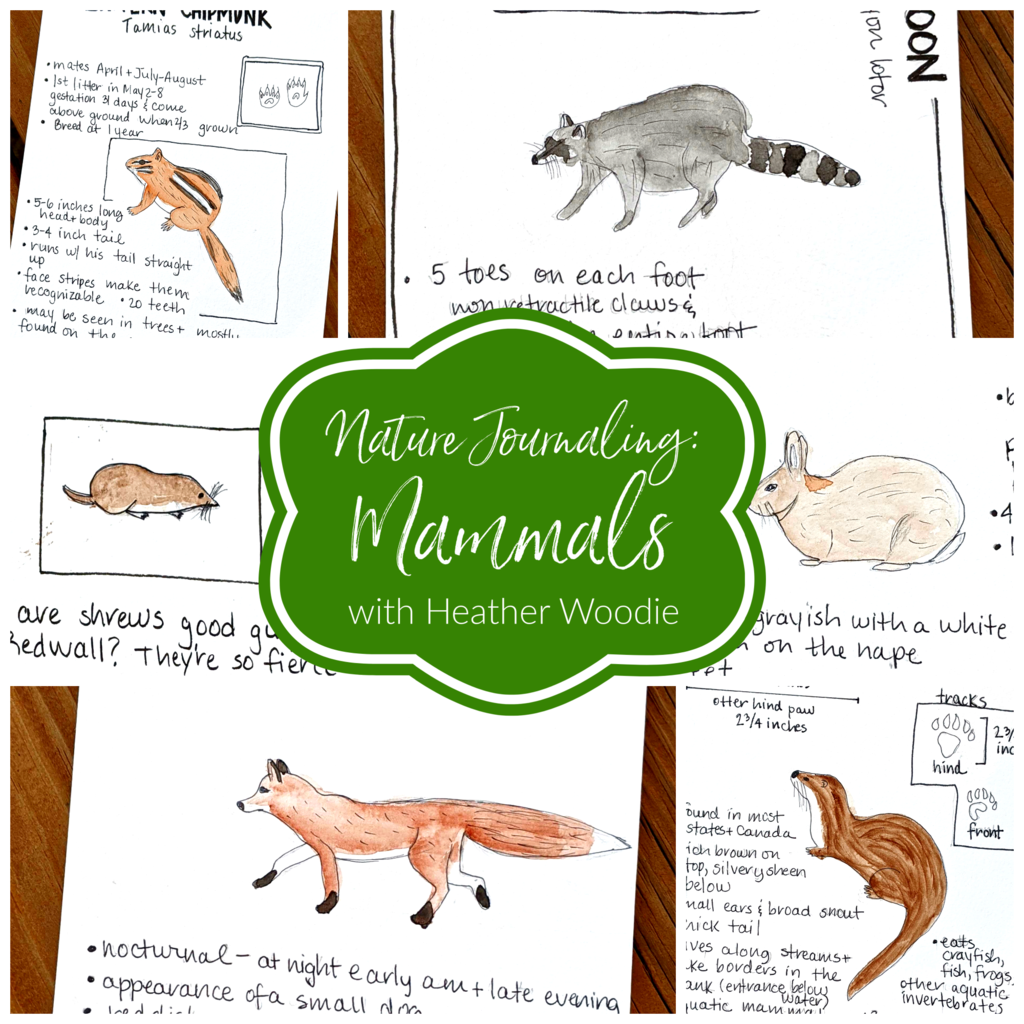 CHIPMUNK
Tamias striatus
• mates April + July-August
• 1st litter in May 2-8
gestation 31 days & come
above ground when 2/3 grown
• Breed at 1 year
• 5-6 inches long
head + body
• 3-4 inch tail
• runs w/ his tail straight
up
• face stripes make them
recognizable • 20 teeth
• may be seen in trees + mostly
found on the
OON
lotor
• 5 toes on each foot
non retractile claws &
Nature Journaling:
Mammals
with Heather Woodie
are shrews good
Redwall? They're so fierce
grayish with a white
on the nape
• 4
• nocturnal – at night early am + late evening
• appearance of a small dog
otter hind paw
2 3/4 inches
tracks
hind
front
ound in most
states + Canada
ich brown on
top, silvery sheen
below
mall ears & broad snout
hick tail
ives along streams +
ke borders in the
ank (entrance below
water)
uatic mammal
• eats
crayfish,
fish, frogs
other aquatic
invertebrates